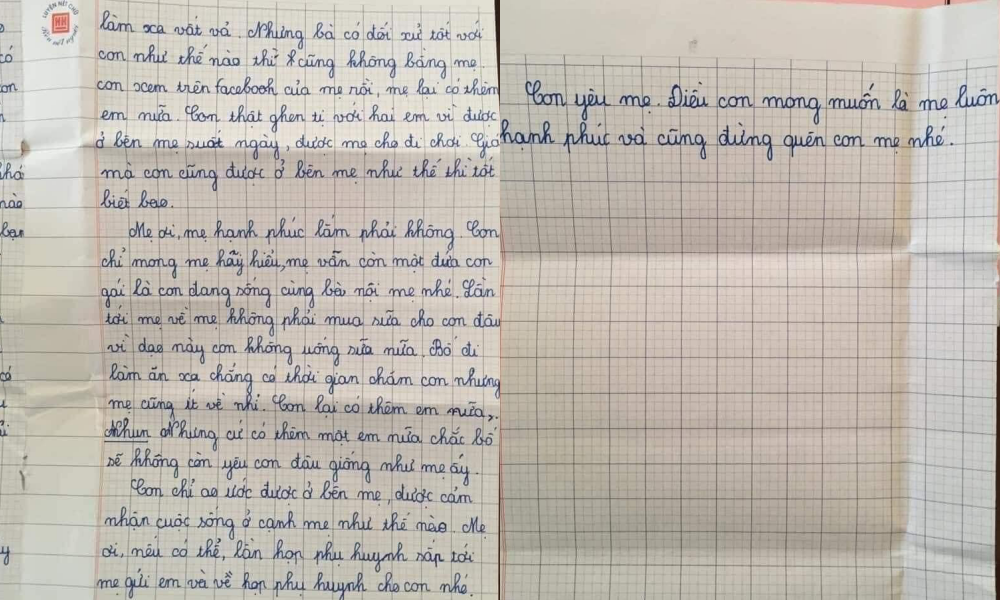 LUYỆN NÉT CHỮ
HH
làm xa vất vả. Nhưng bà có đối xử tốt với
con như thế nào thì cũng không bằng mẹ.
con xem trên facebook của mẹ rồi, mẹ lại có thêm
em nữa. Con thật ghen tị với hai em vì được
ở bên mẹ suốt ngày, được mẹ cho đi chơi. Giá
mà con cũng được ở bên mẹ như thế thì tốt
biết bao.
Mẹ ơi, mẹ hạnh phúc lắm phải không. Con
chỉ mong mẹ hãy hiểu, mẹ vẫn còn một đứa con
gái là con đang sống cùng bà nội mẹ nhé. Lần
tới mẹ về mẹ không phải mua sữa cho con đâu
vì dạo này con không uống sữa nữa. Bố đi
làm ăn xa chẳng có thời gian chăm con nhưng
mẹ cũng ít về nhỉ. Con lại có thêm em nữa,
Nhun Nhưng cứ có thêm một em nữa chắc bố
sẽ không còn yêu con đâu giống như mẹ ấy.
Con chỉ ao ước được ở bên mẹ, được cảm
nhận cuộc sống ở cạnh mẹ như thế nào. Mẹ
ơi, nếu có thể, lần họp phụ huynh sắp tới
mẹ gửi em và về họp phụ huynh cho con nhé.
Con yêu mẹ. Điều con mong muốn là mẹ luôn
hạnh phúc và cũng đừng quên con mẹ nhé.